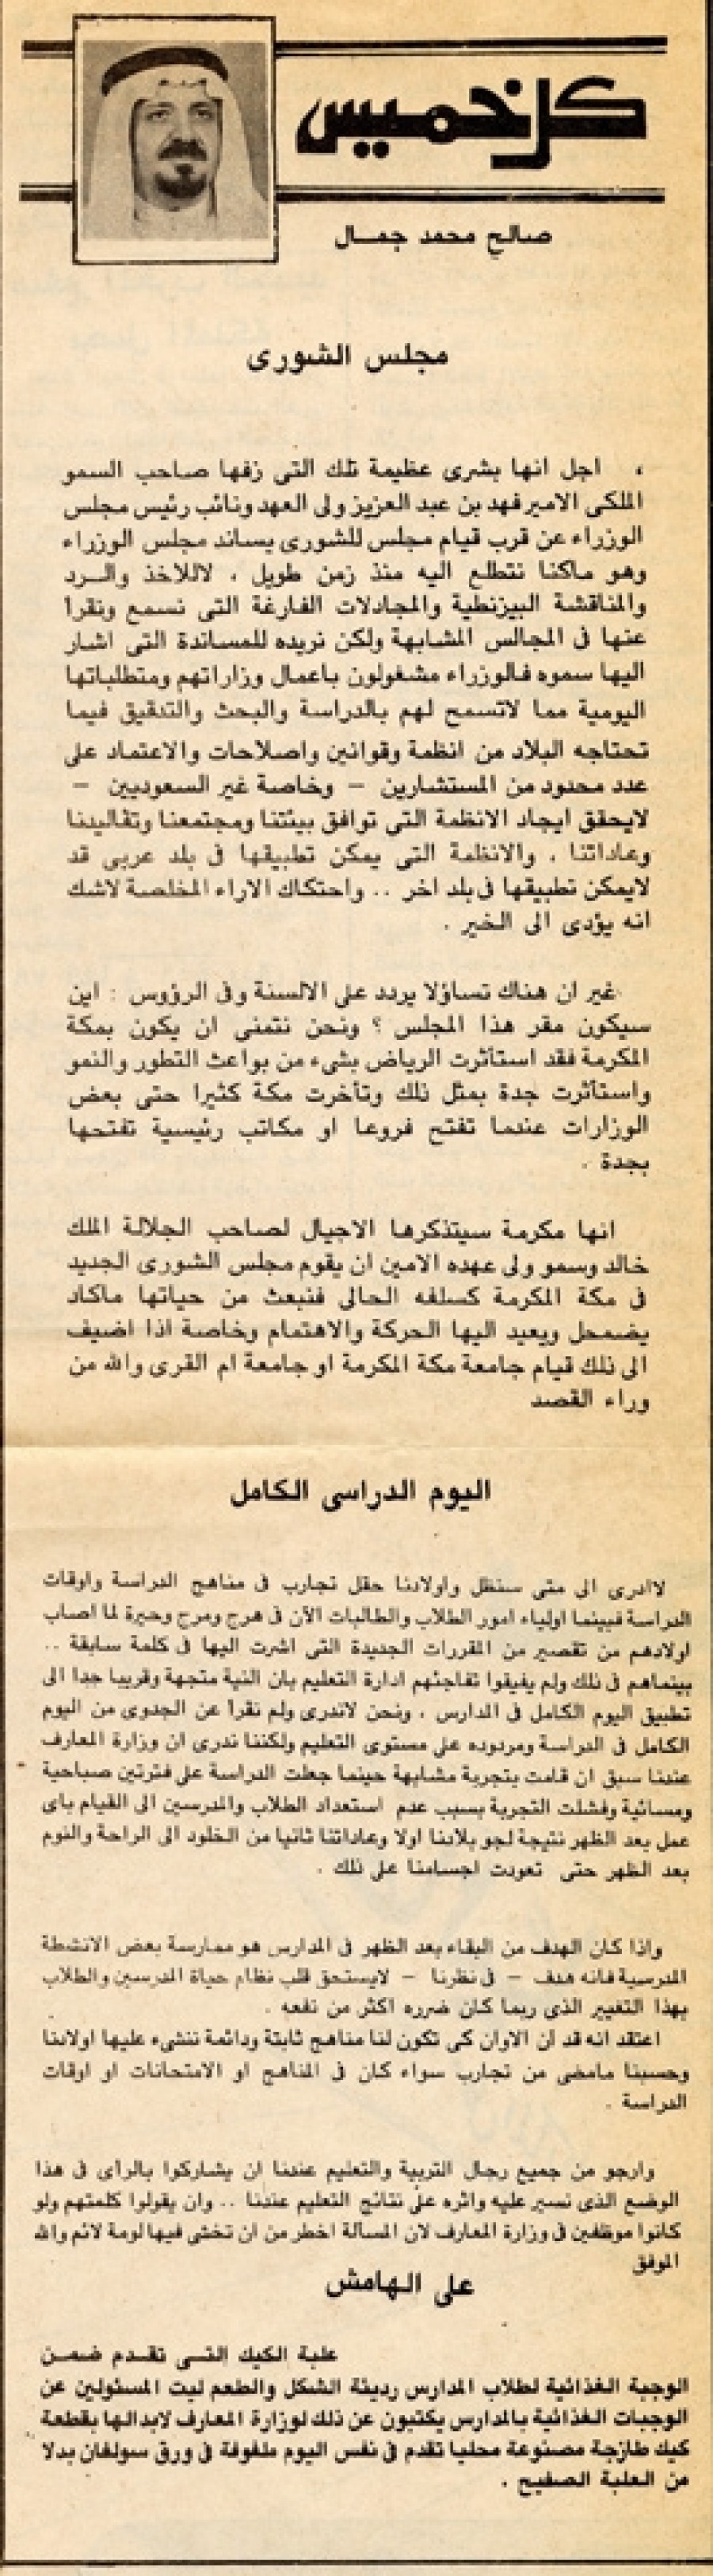 كل خميس
صالح محمد جمال
مجلس الشورى
، اجل انها بشرى عظيمة تلك التى زفها صاحب السمو
الملكى الامير فهد بن عبد العزيز ولى العهد ونائب رئيس مجلس
الوزراء عن قرب قيام مجلس للشورى يساند مجلس الوزراء
وهو ماكنا نتطلع اليه منذ زمن طويل ، لاللاخذ والرد
والمناقشة البيزنطية والمجادلات الفارغة التى نسمع ونقرأ
عنها فى المجالس المشابهة ولكن نريده للمساندة التى اشار
اليها سموه فالوزراء مشغولون باعمال وزاراتهم ومتطلباتها
اليومية مما لاتسمح لهم بالدراسة والبحث والتدقيق فيما
تحتاجه البلاد من انظمة وقوانين واصلاحات والاعتماد على
عدد محدود من المستشارين - وخاصة غير السعوديين -
لايحقق ايجاد الانظمة التى توافق بيئتنا ومجتمعنا وتقاليدنا
وعاداتنا ، والانظمة التى يمكن تطبيقها فى بلد عربى قد
لايمكن تطبيقها فى بلد اخر .. واحتكاك الاراء المخلصة لاشك
انه يؤدى الى الخير .
غير ان هناك تساؤلا يردد على الالسنة وفى الرؤوس : اين
سيكون مقر هذا المجلس ؟ ونحن نتمنى ان يكون بمكة
المكرمة فقد استأثرت الرياض بشىء من بواعث التطور والنمو
واستأثرت جدة بمثل ذلك وتأخرت مكة كثيرا حتى بعض
الوزارات عندما تفتح فروعا او مكاتب رئيسية تفتحها
بجدة .
انها مكرمة سيتذكرها الاجيال لصاحب الجلالة الملك
خالد وسمو ولى عهده الامين ان يقوم مجلس الشورى الجديد
فى مكة المكرمة كسلفه الحالى فنبعث من حياتها ماكاد
يضمحل ويعيد اليها الحركة والاهتمام وخاصة اذا اضيف
الى ذلك قيام جامعة مكة المكرمة او جامعة ام القرى والله من
وراء القصد
اليوم الدراسى الكامل
لاادرى الى متى سنظل واولادنا حقل تجارب فى مناهج الدراسة واوقات
الدراسة فبينما اولياء امور الطلاب والطالبات الآن فى هرج ومرج وحيرة لما اصاب
اولادهم من تقصير من المقررات الجديدة التى اشرت اليها فى كلمة سابقة ..
بينماهم فى ذلك ولم يفيقوا تفاجئهم ادارة التعليم بان النية متجهة وقريبا جدا الى
تطبيق اليوم الكامل فى المدارس ، ونحن لاندرى ولم نقرأ عن الجدوى من اليوم
الكامل فى الدراسة ومردوده على مستوى التعليم ولكننا ندرى ان وزارة المعارف
عندنا سبق ان قامت بتجربة مشابهة حينما جعلت الدراسة على فترتين صباحية
ومسائية وفشلت التجربة بسبب عدم استعداد الطلاب والمدرسين الى القيام باى
عمل بعد الظهر نتيجة لجو بلادنا اولا وعاداتنا ثانيا من الخلود الى الراحة والنوم
بعد الظهر حتى تعودت اجسامنا على ذلك .
واذا كان الهدف من البقاء بعد الظهر فى المدارس هو ممارسة بعض الانشطة
المدرسية فانه هدف - فى نظرنا - لايستحق قلب نظام حياة المدرسين والطلاب
بهذا التغيير الذى ربما كان ضرره اكثر من نفعه .
اعتقد انه قد آن الاوان كى تكون لنا مناهج ثابتة ودائمة ننشىء عليها اولادنا
وحسبنا مامضى من تجارب سواء كان فى المناهج او الامتحانات او اوقات
الدراسة .
وارجو من جميع رجال التربية والتعليم عندنا ان يشاركوا بالرأى فى هذا
الوضع الذى نسير عليه واثره على نتائج التعليم عندنا .. وان يقولوا كلمتهم ولو
كانوا موظفين فى وزارة المعارف لان المسألة اخطر من ان تخشى فيها لومة لائم والله
الموفق
على الهامش
علبة الكيك التى تقدم ضمن
الوجبة الغذائية لطلاب المدارس رديئة الشكل والطعم ليت المسئولين عن
الوجبات الغذائية بالمدارس يكتبون عن ذلك لوزارة المعارف لابدالها بقطعة
كيك طازجة مصنوعة محليا تقدم فى نفس اليوم ملفوفة فى ورق سولفان بدلا
من العلبة الصفيح .